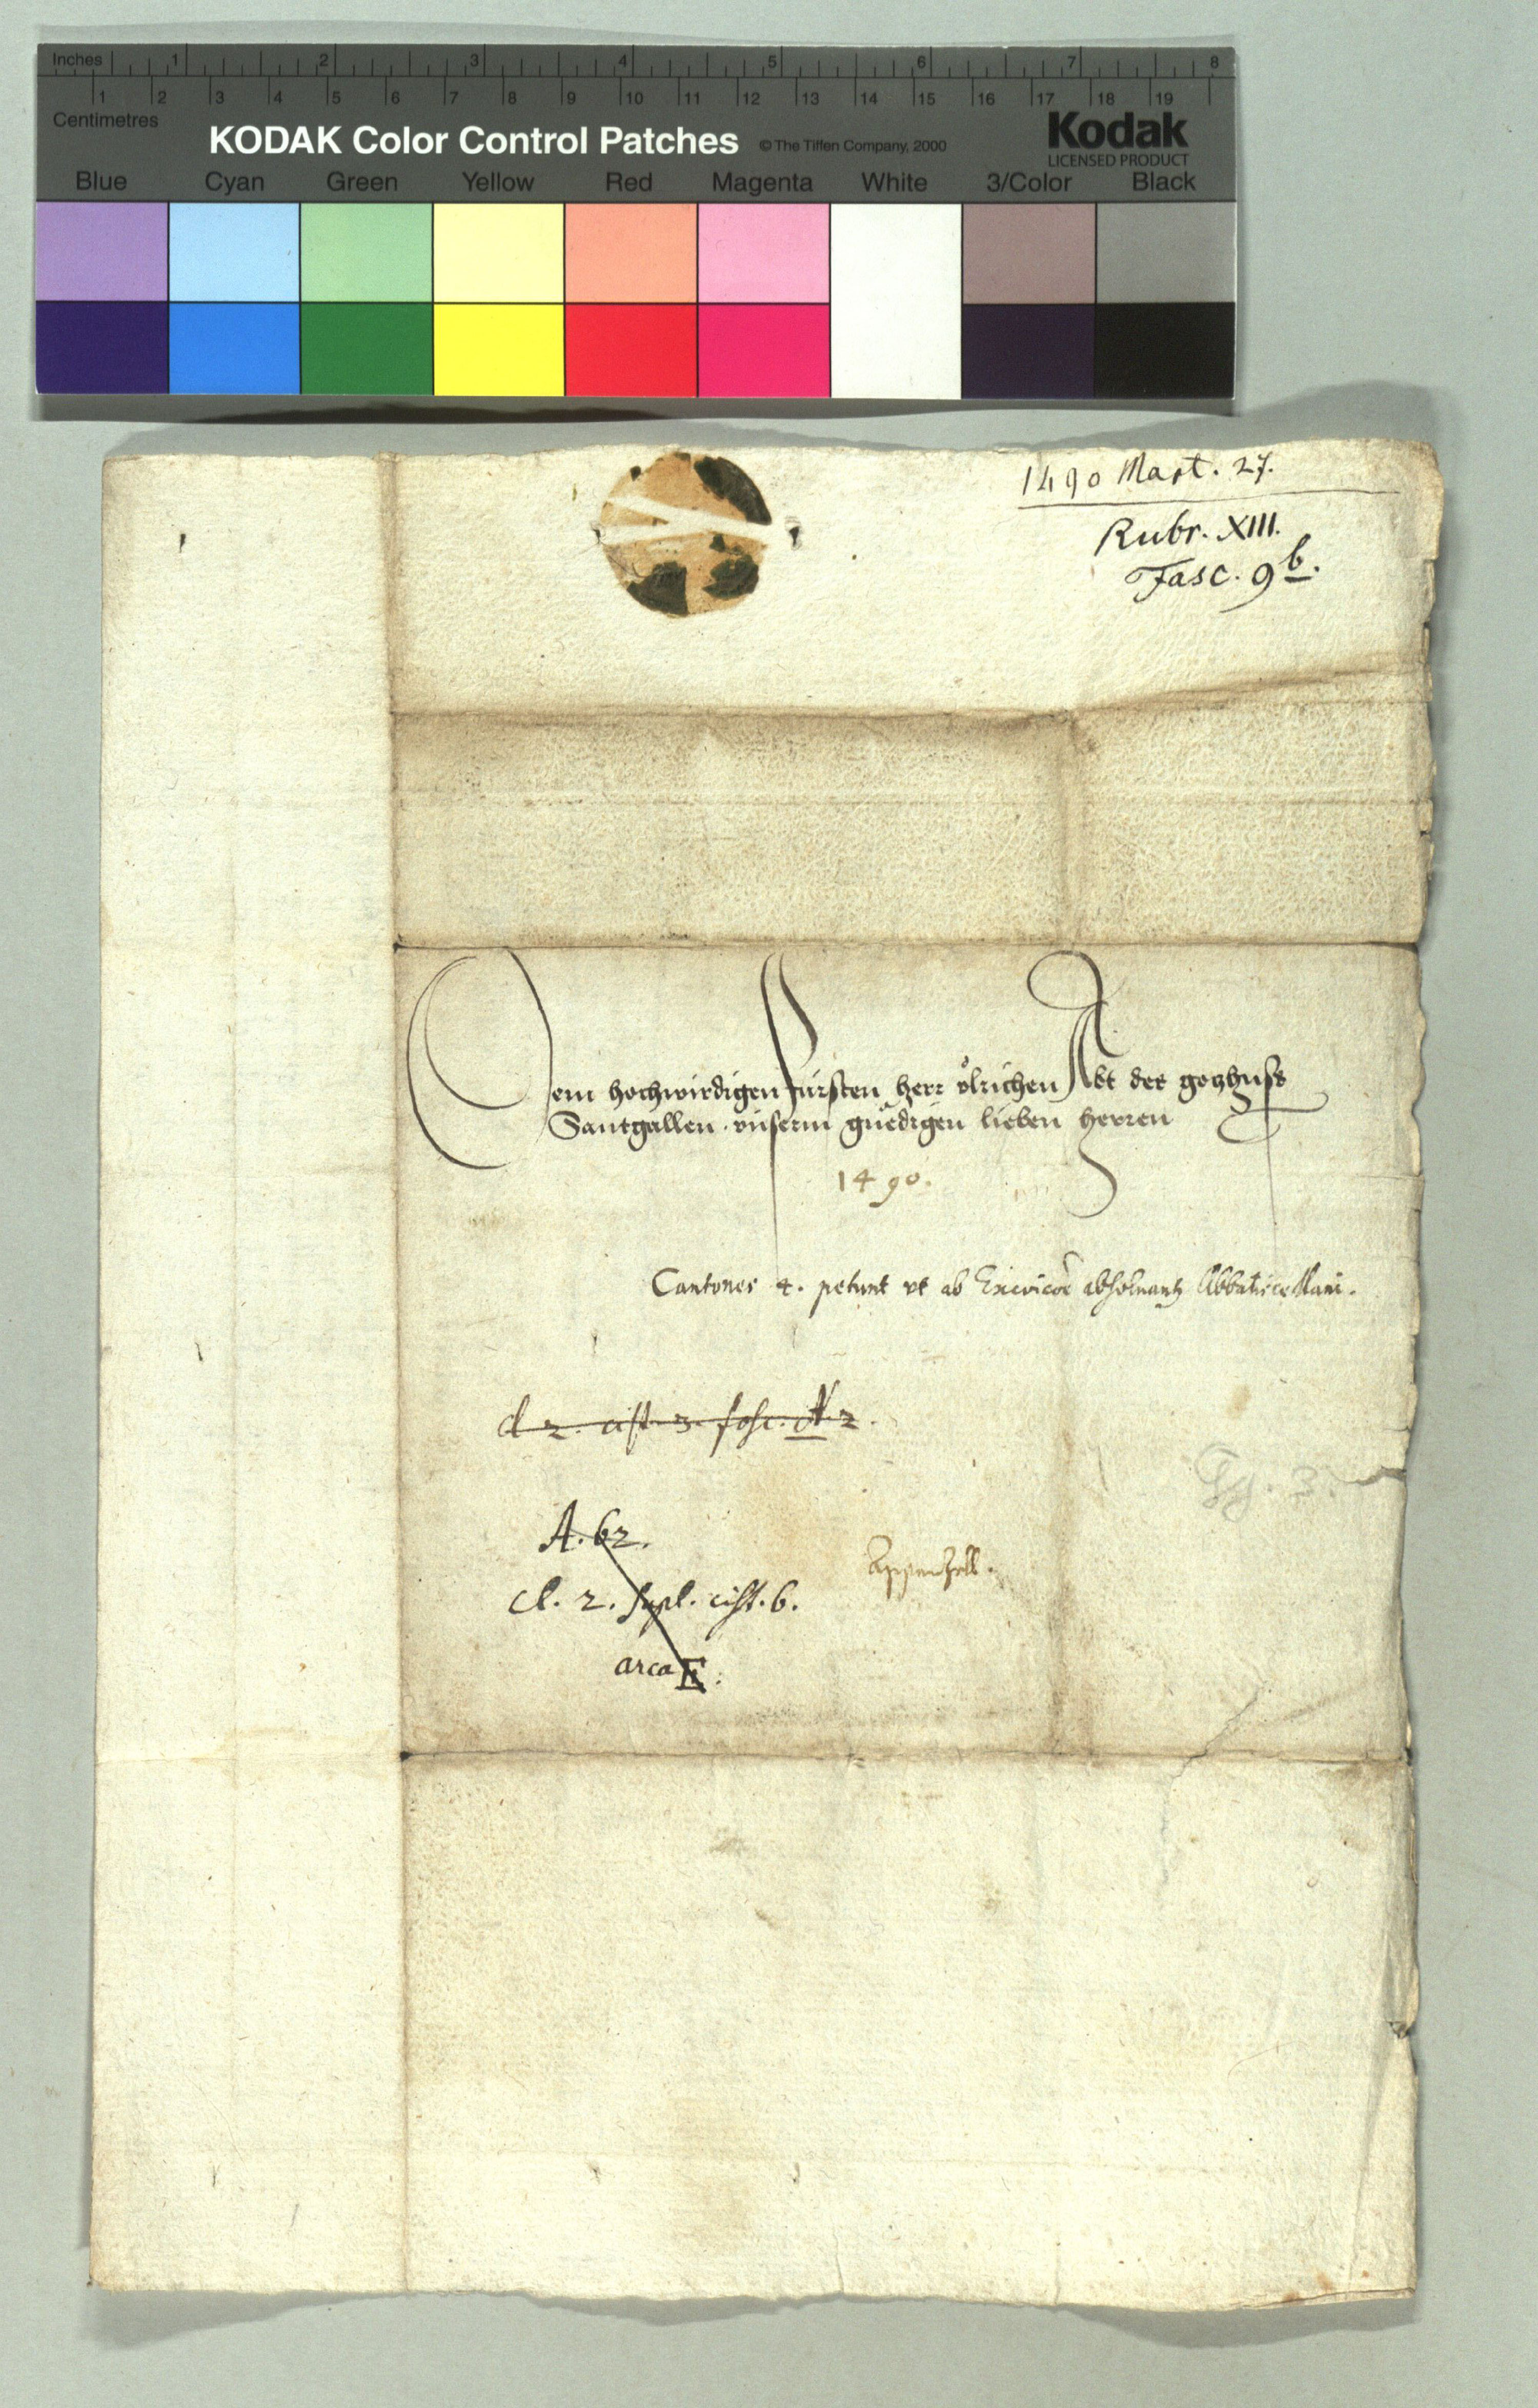 Inches 1 2 3 4 5 6 7 8
1 2 3 4 5 6 7 8 9 10 11 12 13 14 15 16 17 18 19
Centimetres
KODAK Color Control Patches © The Tiffen Company, 2000 Kodak
LICENSED PRODUCT
Blue Cyan Green Yellow Red Magenta White 3/Color Black
1490 Mart. 27.
Rubr. XIII.
Fasc. 9 b.
Dem hochwirdigen fürsten herr Ůlrichen Abt des gotzhuss
Santgallen vnserm gnedigen lieben herren
1490.
Cantones 4. petunt vt ab absoluantur Abbatiscellani.
cl. 2. cist. 3. fasc. 2.
A. 62.
Appenzell.
cl. 2. supl. cist. 6.
arca E.